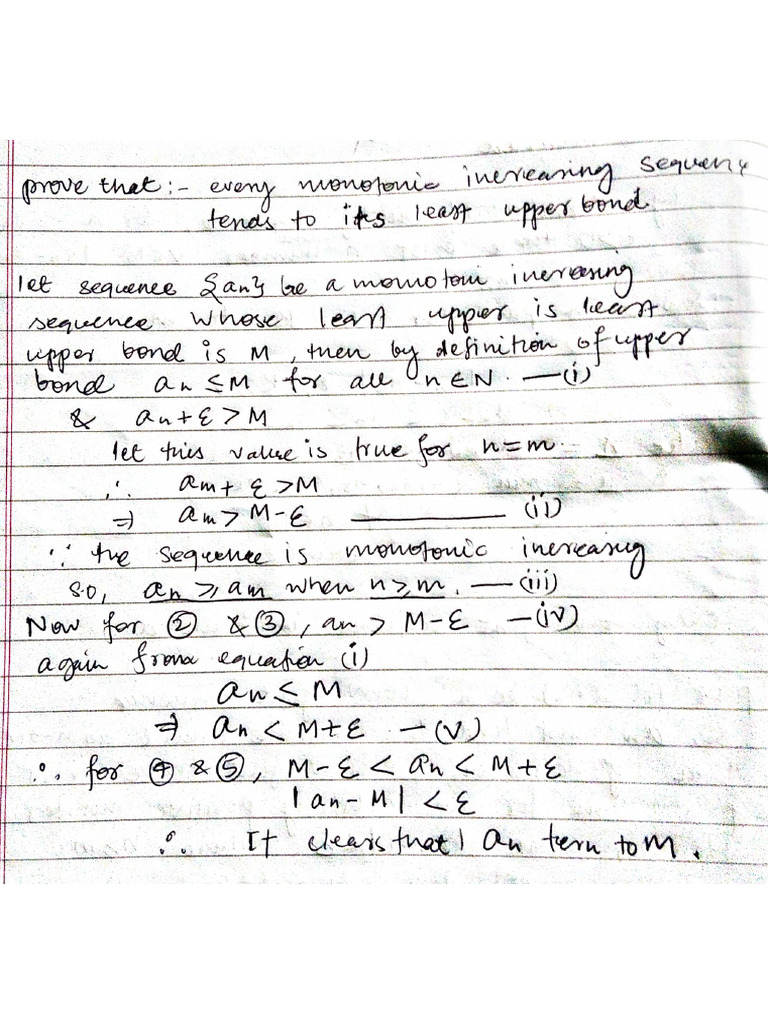 prove that:- every monotonic increasing sequen
tends to its least upper bond.
let sequence {an} be a momotoni increasing
sequence whose least upper is least
upper bond is M, then by definition of upper
bond an ≤ M for all n ∈ N. —(i)
& an + ε > M
let this value is true for n = m.
∴ am + ε > M
⇒ am > M - ε ——— (ii)
∵ the sequence is monotonic increasing
so, an ≥ am when n ≥ m. —(iii)
Now for ② & ③, an > M - ε —(iv)
again from equation (i)
an ≤ M
⇒ an < M + ε —(v)
∴ for ④ & ⑤, M - ε < an < M + ε
|an - M| < ε
∴ It clears that | an tern to M.